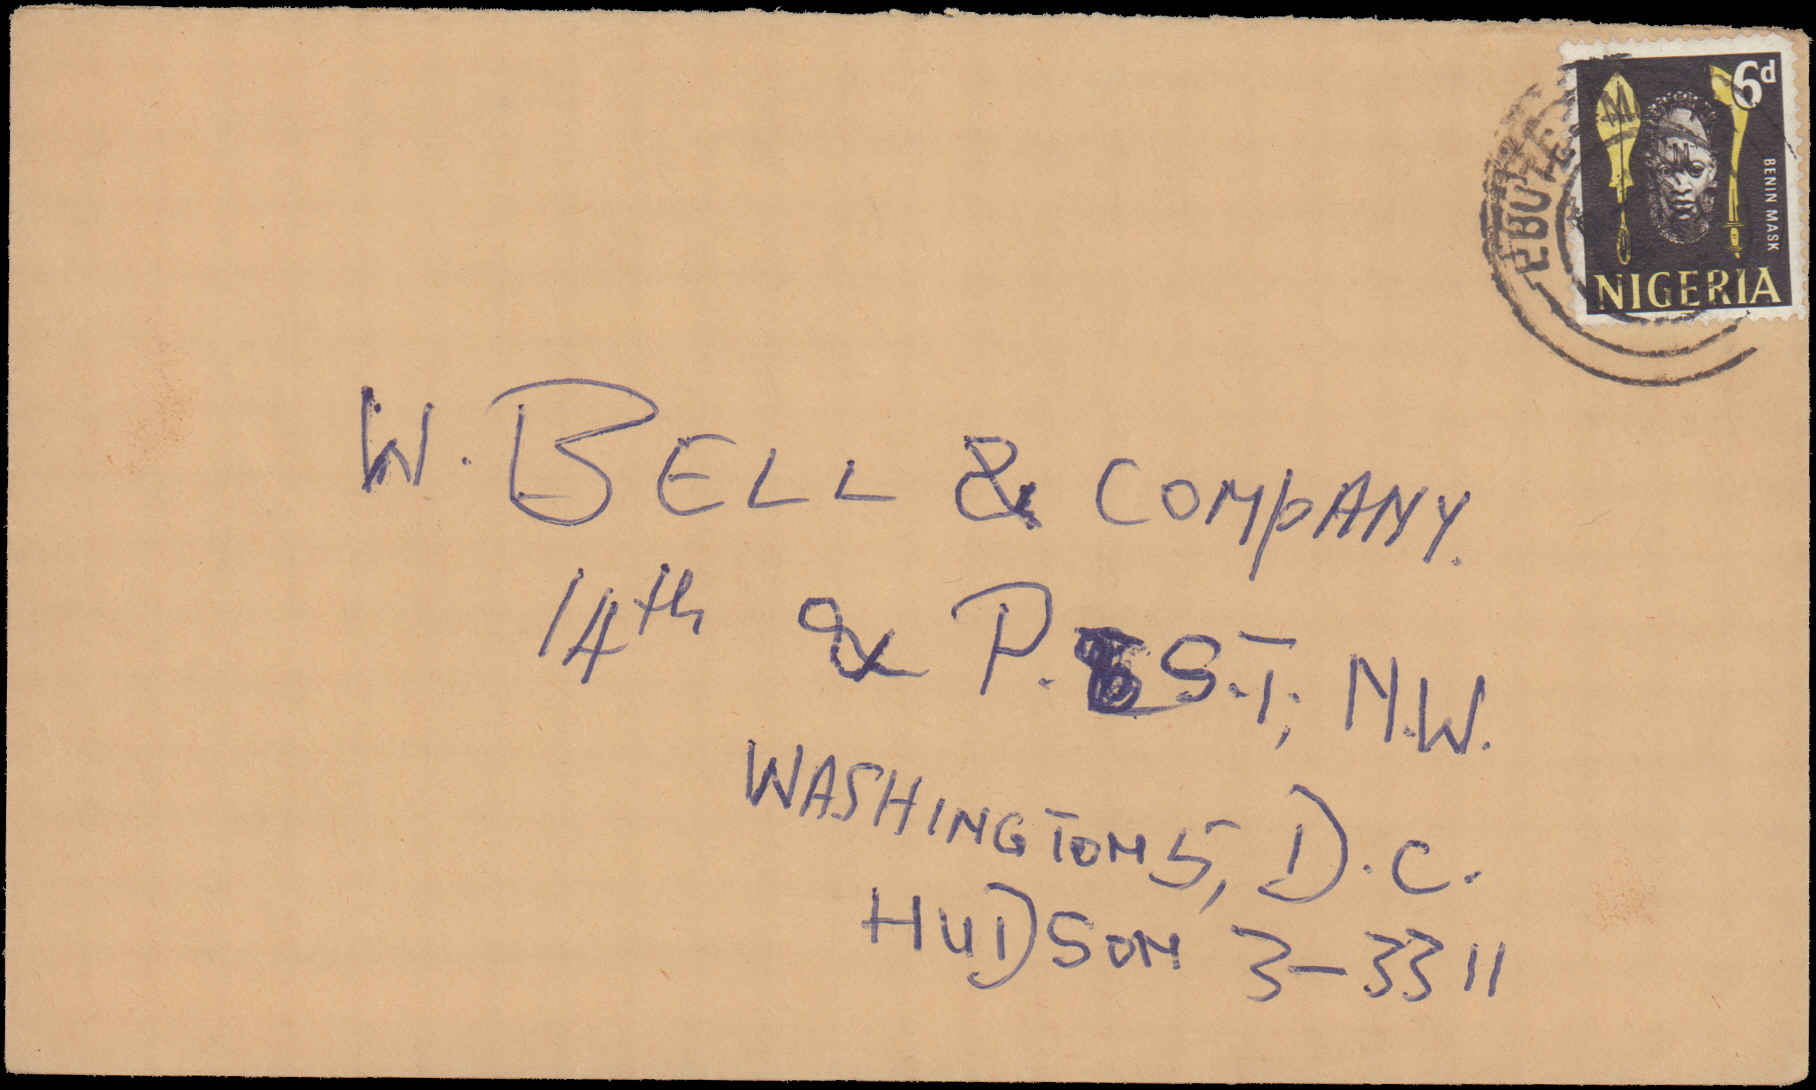 6d
BENIN MASK
NIGERIA
W. BELL & COMPANY.
14th & P. S.T, N.W.
WASHINGTON 5, D.C.
HUDSON 3-3311